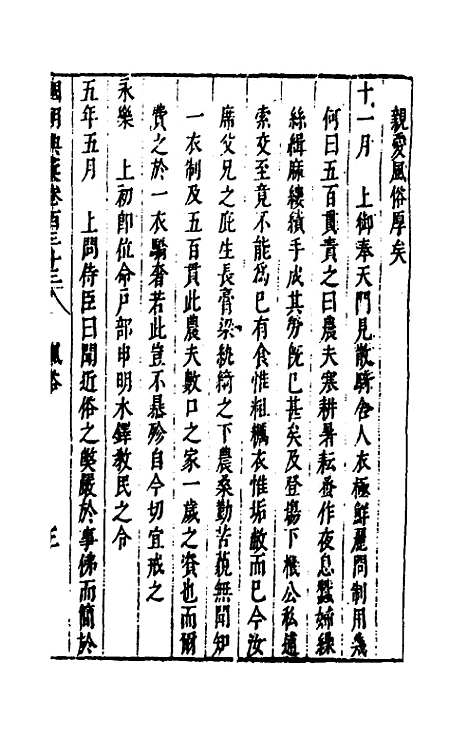 親愛風俗厚矣
十一月　上御奉天門見散騎舍人衣極鮮麗問制用幾
何曰五百貫責之曰農夫寒耕暑耘蚤作夜息蠶婦繰
絲緝麻縷績手成其勞既已甚矣及登塲下機公私逋
索交至竟不能爲已有食惟粗糲衣惟垢敝而已今汝
席父兄之庇生長膏梁紈綺之下農桑勤苦邈無聞知
一衣制及五百貫此農夫數口之家一歲之資也而爾
費之於一衣驕奢若此豈不暴殄自今切宜戒之
永樂　上初卽位命戸部申明木鐸教民之令
五年五月　上問侍臣曰聞近俗之弊嚴於事佛而簡於
國朝典彙卷百三十三　風俗　三